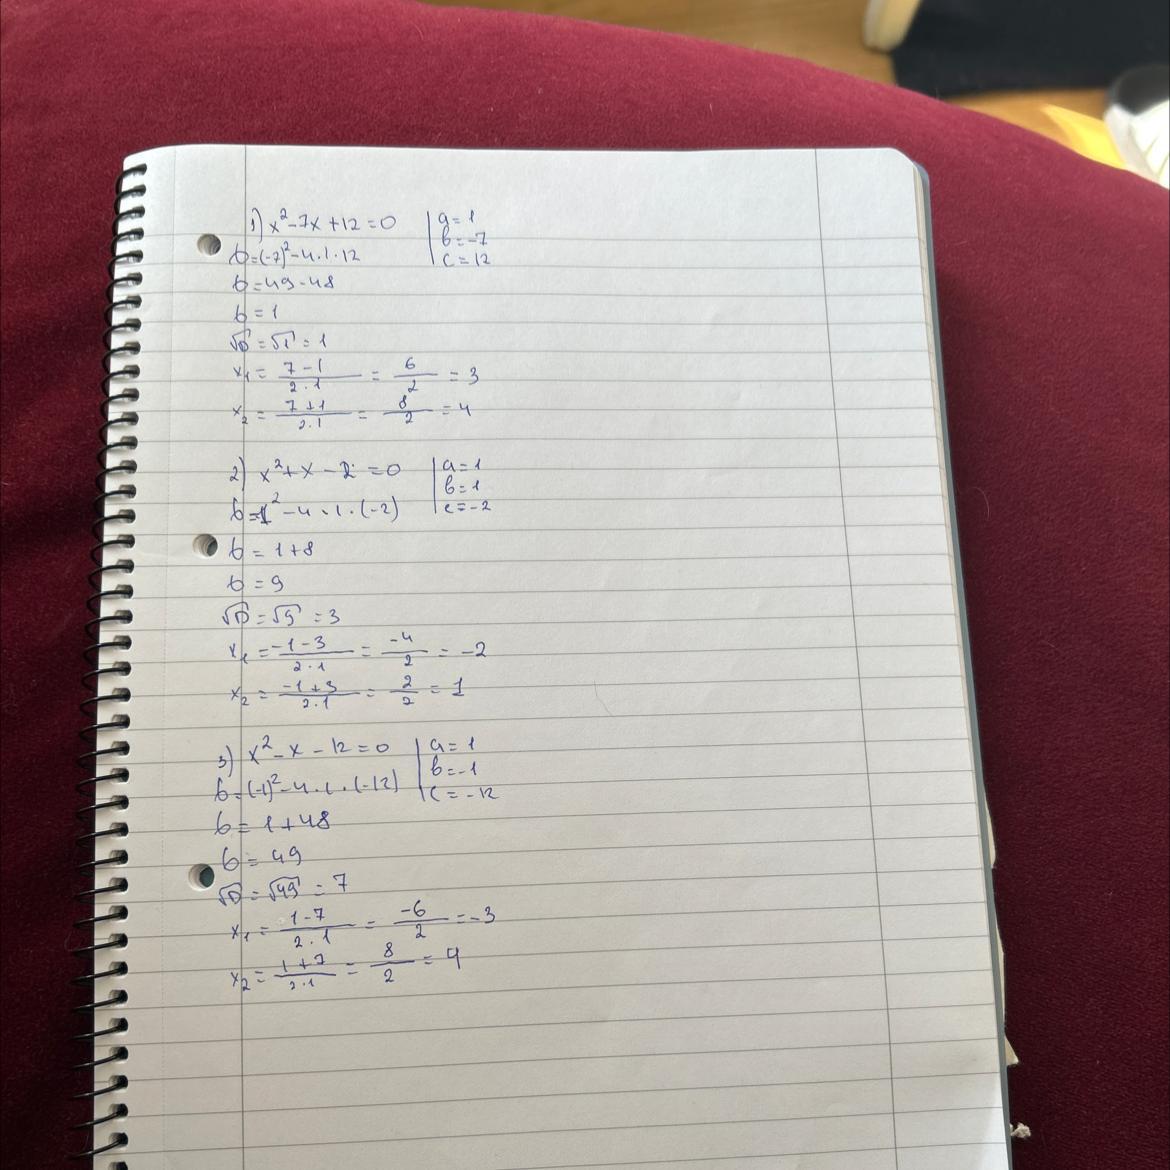 1) x²-7x+12=0 | a=1
b=-7
D=(-7)²-4·1·12 c=12
D=49-48
D=1
√D=√1=1
x₁=(7-1)/(2·1)=6/2=3
x₂=(7+1)/(2·1)=8/2=4
2) x²+x-2=0 | a=1
b=1
D=1²-4·1·(-2) c=-2
D=1+8
D=9
√D=√9=3
x₁=(-1-3)/(2·1)=-4/2=-2
x₂=(-1+3)/(2·1)=2/2=1
3) x²-x-12=0 | a=1
b=-1
D=(-1)²-4·1·(-12) c=-12
D=1+48
D=49
√D=√49=7
x₁=(1-7)/(2·1)=-6/2=-3
x₂=(1+7)/(2·1)=8/2=4